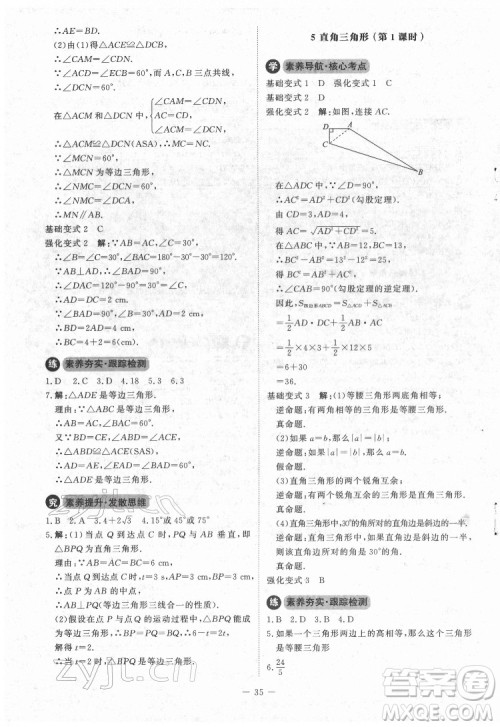 ∴AE=BD.
(2)由(1)得△ACE≌△DCB,
∴∠AEC=∠DBC.
又∵∠DCE=180°-60°-60°=60°,
∴∠ACD=∠DCE=60°.
在△ECM和△BCN中,
∠AEC=∠DBC,
CE=CB,
∴△ECM≌△BCN(ASA).
∴CM=CN.
∵∠MCN=60°,
∴△MCN为等边三角形.
∴∠NMC=∠DCN=60°.
∴∠NMC=∠DCA.
∴MN∥AB.
基础变式2 C
强化变式2 解:∵AB=AC,∠C=30°,
∴∠B=∠C=30°.
∴∠BAC=180°-30°-30°=120°.
∵AB⊥AD,
∴∠BAD=90°.
∴∠CAD=120°-90°=30°.
∴∠CAD=∠C.
∴AD=CD=2 cm.
∵∠B=30°,∠BAD=90°,
∴BD=2AD=4 cm.
∴BC=4+2=6(cm).
练 素养夯实·跟踪检测
1.D 2.C 3.D 4.18 5.3 6.3
7.解:△ADE是等边三角形.
理由:∵△ABC是等边三角形,
∴∠B=∠BAC=60°,AB=AC.
∵∠ACE=60°,
∴∠B=∠ACE.
又∵BD=CE,
∴△ABD≌△ACE(SAS).
∴AD=AE,∠BAD=∠CAE.
∴∠DAE=∠BAC=60°.
∴△ADE是等边三角形.
究 素养提升·发散思维
1.B 2.A 3.4+2√3 4.15°或45°或75°
5.解:(1)当点Q到达点C时,PQ与AB垂直,
即△BPQ为直角三角形.
理由:∵AB=AC=BC=6 cm,
∴当点Q到达点C时,AP=3 cm.
∴点P为AB的中点.
∴PQ⊥AB(等腰三角形三线合一的性质).
即△BPQ为直角三角形.
(2)假设在点P与点Q的运动过程中,△BPQ
能成为等边三角形,
∴BP=BQ.∴6-t=2t.
解得t=2.
∴当t=2时,△BPQ是等边三角形.
5 直角三角形(第1课时)
学 素养导航·核心考点
基础变式1 D 强化变式1 D
基础变式2 C
强化变式2 解:如图,连接AC.
D A
C
B
在△ADC中,∵∠D=90°,
∴AD²+CD²=AC²(勾股定理).
∴AC=√(AD²+CD²)=5.
∵5²+12²=13²,
∴AC²+AB²=BC².
∴∠CAB=90°(勾股定理的逆定理).
因此,S四边形ABCD=S△ADC+S△ABC
=1/2AD·CD+1/2AC·AB
=1/2×4×3+1/2×12×5
=6+30
=36.
基础变式3 解:(1)等腰三角形两底角相等.
逆命题:有两角相等的三角形是等腰三角形.
真命题.
(2)如果a=b,那么|a|=|b|.
逆命题:如果|a|=|b|,那么a=b.
假命题.
(3)直角三角形的两个锐角互余.
逆命题:有两个角互余的三角形是直角三角形.
真命题.
(4)直角三角形中,30°的角所对的直角边是斜边的一半.
逆命题:在直角三角形中,如果一条直角边是斜边
的一半,那么这条直角边所对的角是30°.
真命题.
强化变式3 B
练 素养夯实·跟踪检测
1.B 2.D 3.C 4.B
5.如果一个三角形两边上的高相等,那么这个三
角形是等腰三角形
6.24/5
35